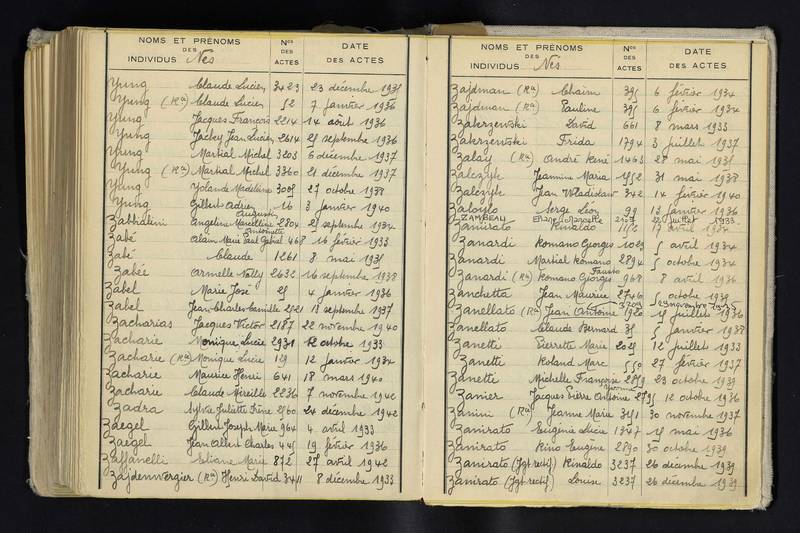 NOMS ET PRÉNOMS
DES
INDIVIDUS Nés
Nos
DES
ACTES
DATE
DES ACTES
Yung Claude Lucien 3423 23 décembre 1935
Yung (Ron) Claude Lucien 52 7 janvier 1936
Yung Jacques François 2214 14 août 1936
Yung Jackey Jean Lucien 2614 25 septembre 1936
Yung Martial Michel 3203 6 décembre 1937
Yung (Ron) Martial Michel 3360 21 décembre 1937
Yung Yolande Madeleine 3005 27 octobre 1938
Yung Gilbert Adrien 16 3 janvier 1940
Augustin
Zabbidini Angelino Marcelline 2804 25 septembre 1934
Antoinette
Zabé Alain Marie Paul Gabriel 468 16 février 1933
Zabé Claude 1261 8 mai 1935
Zabée Armelle Nelly 2632 16 septembre 1938
Zabel Marie José 25 4 janvier 1936
Zabel Jean Charles Camille 2521 13 septembre 1937
Zacharias Jacques Victor 2187 22 novembre 1940
Zacharie Monique Lucie 2931 12 octobre 1933
Zacharie (Ron) Monique Lucie 129 12 janvier 1934
Zacharie Maurice Henri 641 18 mars 1940
Zacharie Claude Mireille 2236 7 novembre 1942
Zadra Sylvie Juliette Irène 2560 24 décembre 1942
Zaegel Gilbert Joseph Marie 964 4 avril 1933
Zaegel Jean Albert Charles 445 19 février 1936
Zaffanelli Eliane Marie 872 27 avril 1942
Zajdenwergier (Ron) Henri David 3411 8 décembre 1933
NOMS ET PRÉNOMS
DES
INDIVIDUS Nés
Nos
DES
ACTES
DATE
DES ACTES
Zajdman (Ron) Chaim 395 6 février 1934
Zajdman (Ron) Pauline 395 6 février 1934
Zakrzewski David 661 8 mars 1933
Zakrzewski Frida 1794 3 juillet 1937
Zalay (Ron) André René 1463 28 mai 1935
Zalczyk Jeannine Maria 1552 31 mai 1938
Zalczyk Jan Wladislaw 342 14 février 1940
Zaloilo Serge Léon 99 13 janvier 1936
ZAMBEAU Eliane Marcelle juillet 1933
Zanirato Rinaldo 1172 17 avril 1934
Zanardi Romano Georges 1029 5 avril 1934
Zanardi Martial Romano 2894 5 octobre 1934
Fausto
Zanardi (Ron) Romano Georges 968 8 avril 1936
Zanchetta Jean Maurice 2746 5 octobre 1939
novembre
Zanellato (Ron) Jean Antoine 1920 15 juillet 1936
Zanellato Claude Bernard 35 5 janvier 1938
Zanetti Pierrette Marie 2025 12 juillet 1933
Zanetti Roland Marc 550 27 février 1937
Zanetti Michelle Françoise 2859 23 octobre 1939
Yvonne
Zanier Jacques Pierre Antoine 2795 12 octobre 1936
Zanini (Ron) Jeanne Marie 3151 30 novembre 1937
Zanirato Eugénie Lucie 1347 15 mai 1936
Zanirato Rino Eugène 2890 30 octobre 1939
Zanirato (Jgt rectif) Rinaldo 3237 26 décembre 1939
Zanirato (Jgt rectif) Louise 3237 26 décembre 1939